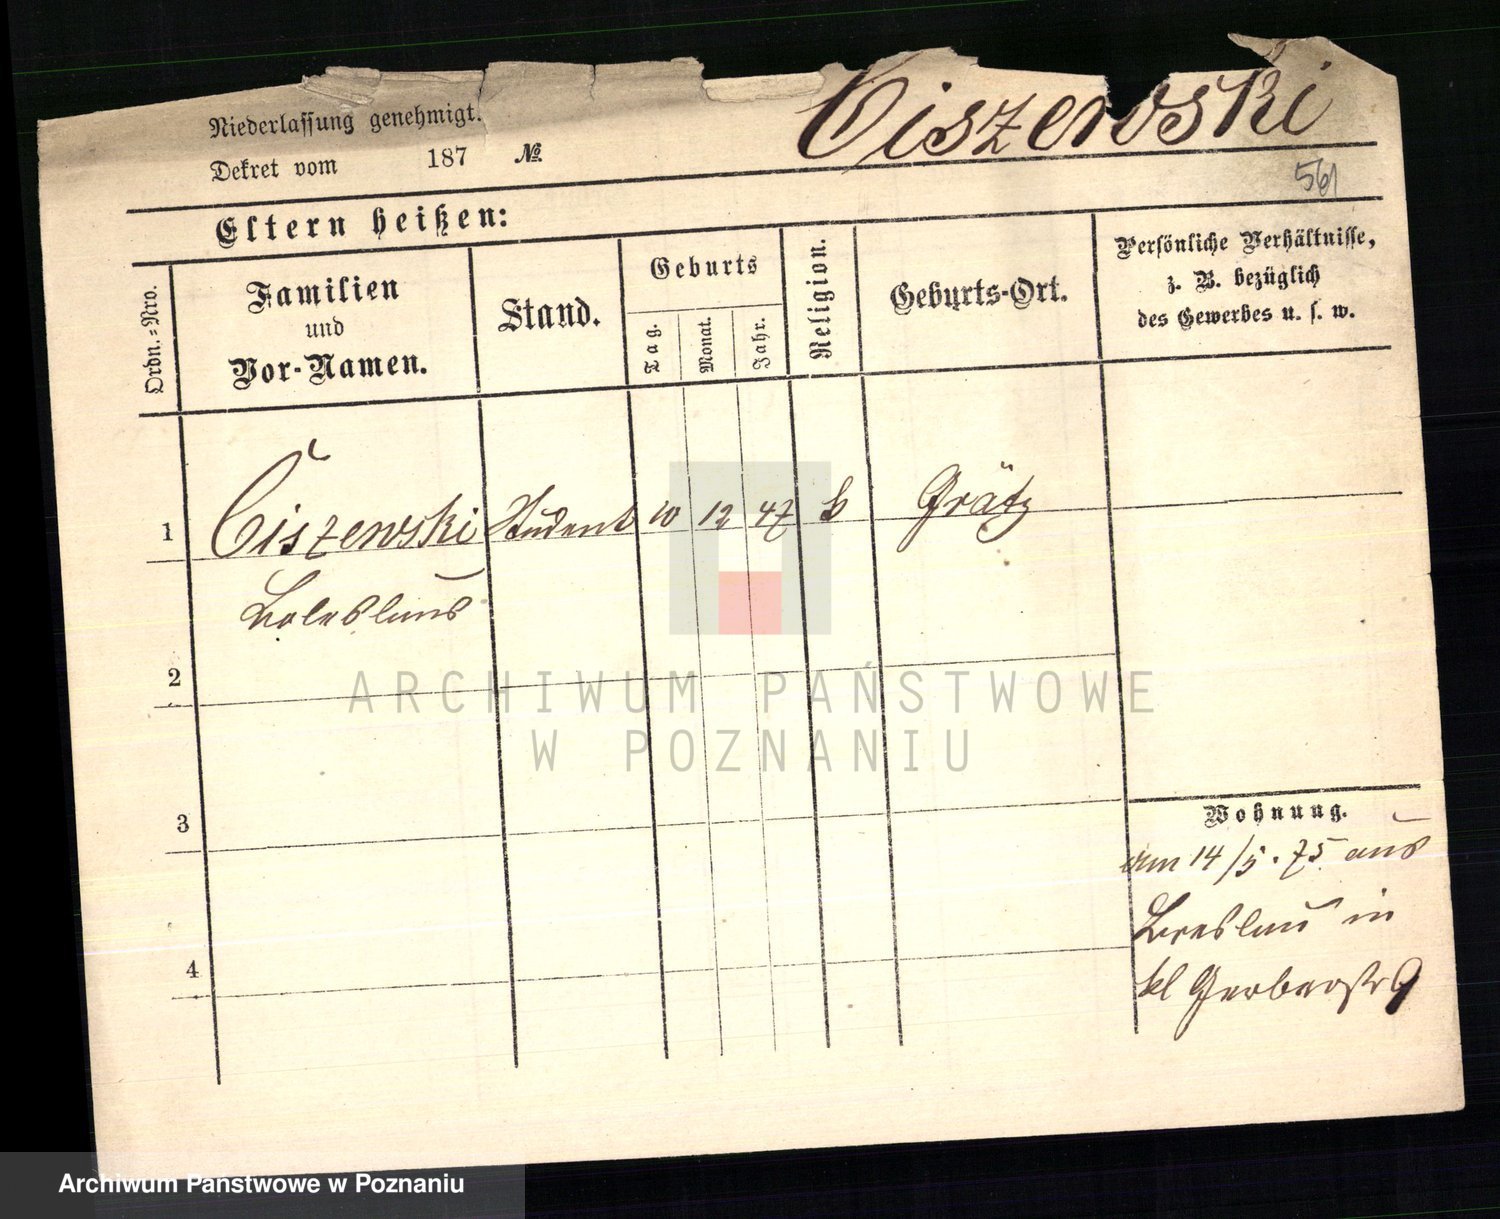 Ciszewski
Niederlassung genehmigt.
Dekret vom 187 №
561
Eltern heißen:
Ordn.-Nro.
Familien
und
Vor-Namen.
Stand.
Geburts
Tag.
Monat.
Jahr.
Religion.
Geburts-Ort.
Persönliche Verhältnisse,
z. B. bezüglich
des Gewerbes u. s. w.
1 Ciszewski Student 10 12 47 k Grätz
Boleslaus
2
3
4
Wohnung.
am 14/5. 75 aus
Breslau in
kl Gerberstr 9
ARCHIWUM PAŃSTWOWE
W POZNANIU
Archiwum Państwowe w Poznaniu